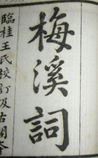 梅溪詞
臨桂王氏校訂及古閣本